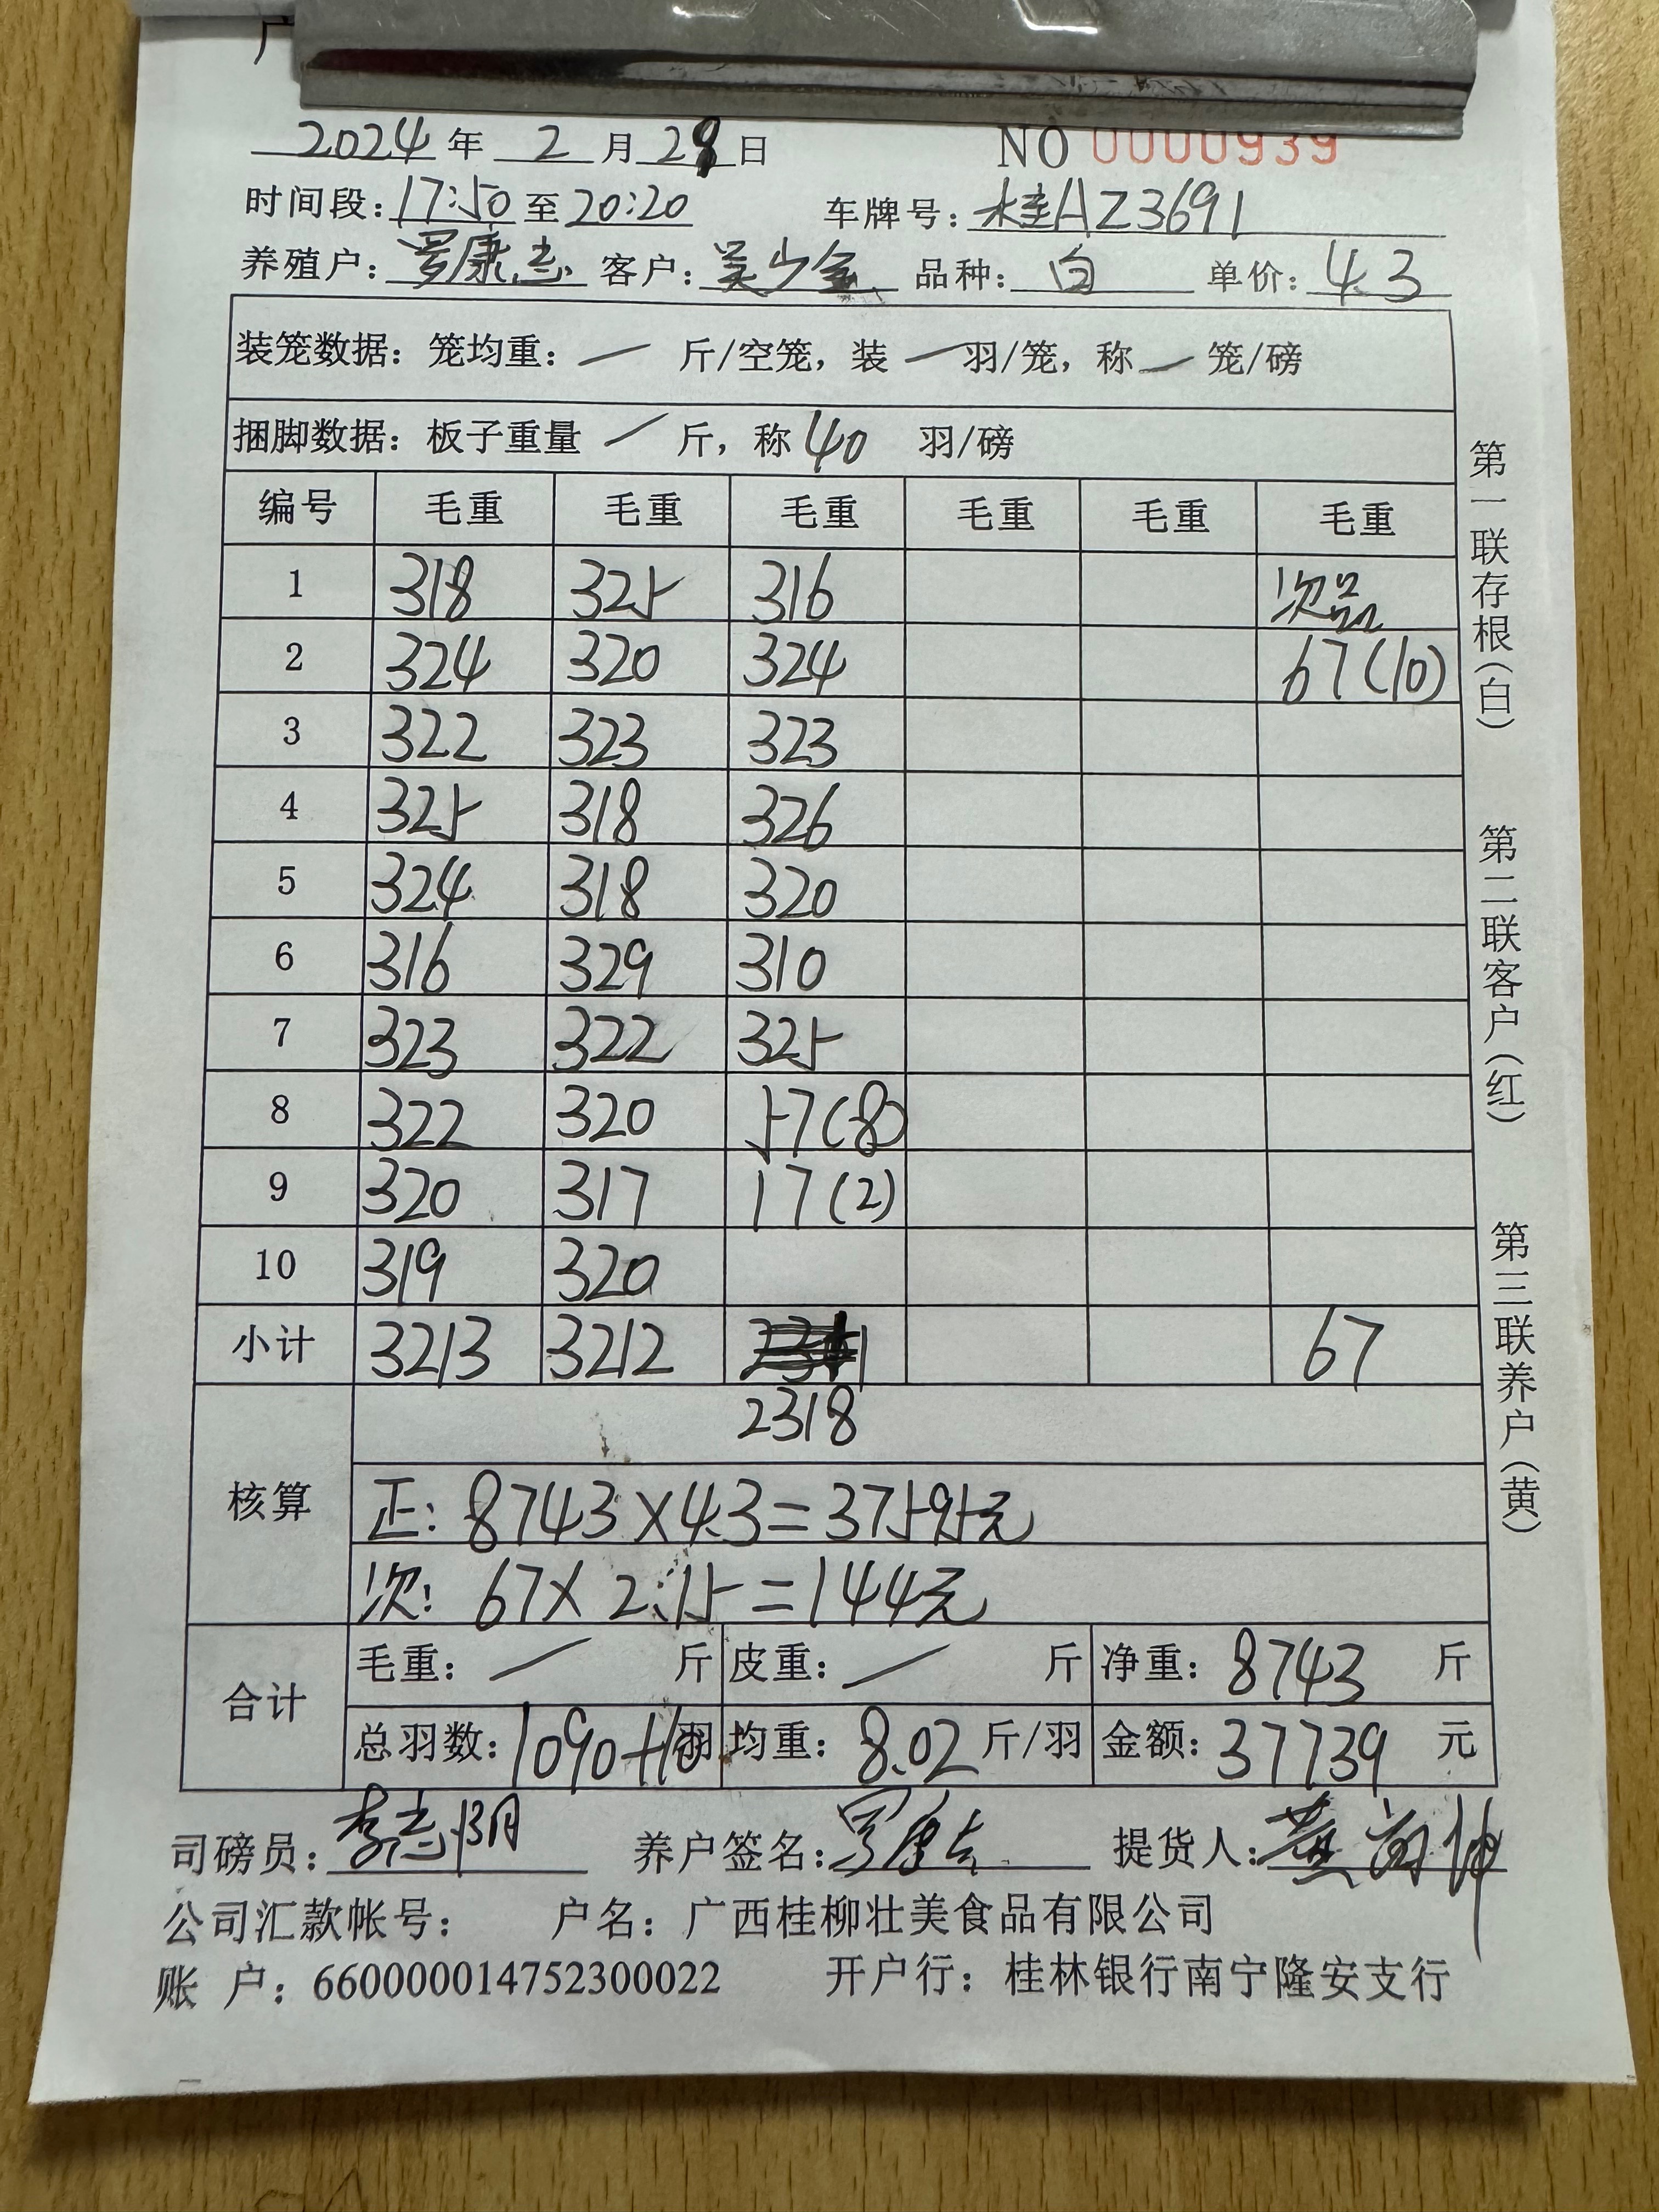 2024年2月28日 NO 0000939
时间段：17:50至20:20 车牌号：桂AZ3691
养殖户：罗康志 客户：吴少金 品种：白 单价：4.3
装笼数据：笼均重：/ 斤/空笼，装 / 羽/笼，称 / 笼/磅
捆脚数据：板子重量 / 斤，称 40 羽/磅
编号 毛重 毛重 毛重 毛重 毛重 毛重
1 318 325 316 次品
2 324 320 324 67(10)
3 322 323 323
4 325 318 326
5 324 318 320
6 316 329 310
7 323 322 325
8 322 320 57(8)
9 320 317 17(2)
10 319 320
小计 3213 3212 67
2318
核算
正：8743×4.3=37595元
次：67×2.15=144元
合计
毛重：/ 斤 皮重：/ 斤 净重：8743 斤
总羽数：1090+10羽 均重：8.02 斤/羽 金额：37739 元
司磅员：李志明 养户签名：罗康志 提货人：黄
公司汇款帐号： 户名：广西桂柳壮美食品有限公司
账 户：660000014752300022 开户行：桂林银行南宁隆安支行
第一联存根（白）
第二联客户（红）
第三联养户（黄）